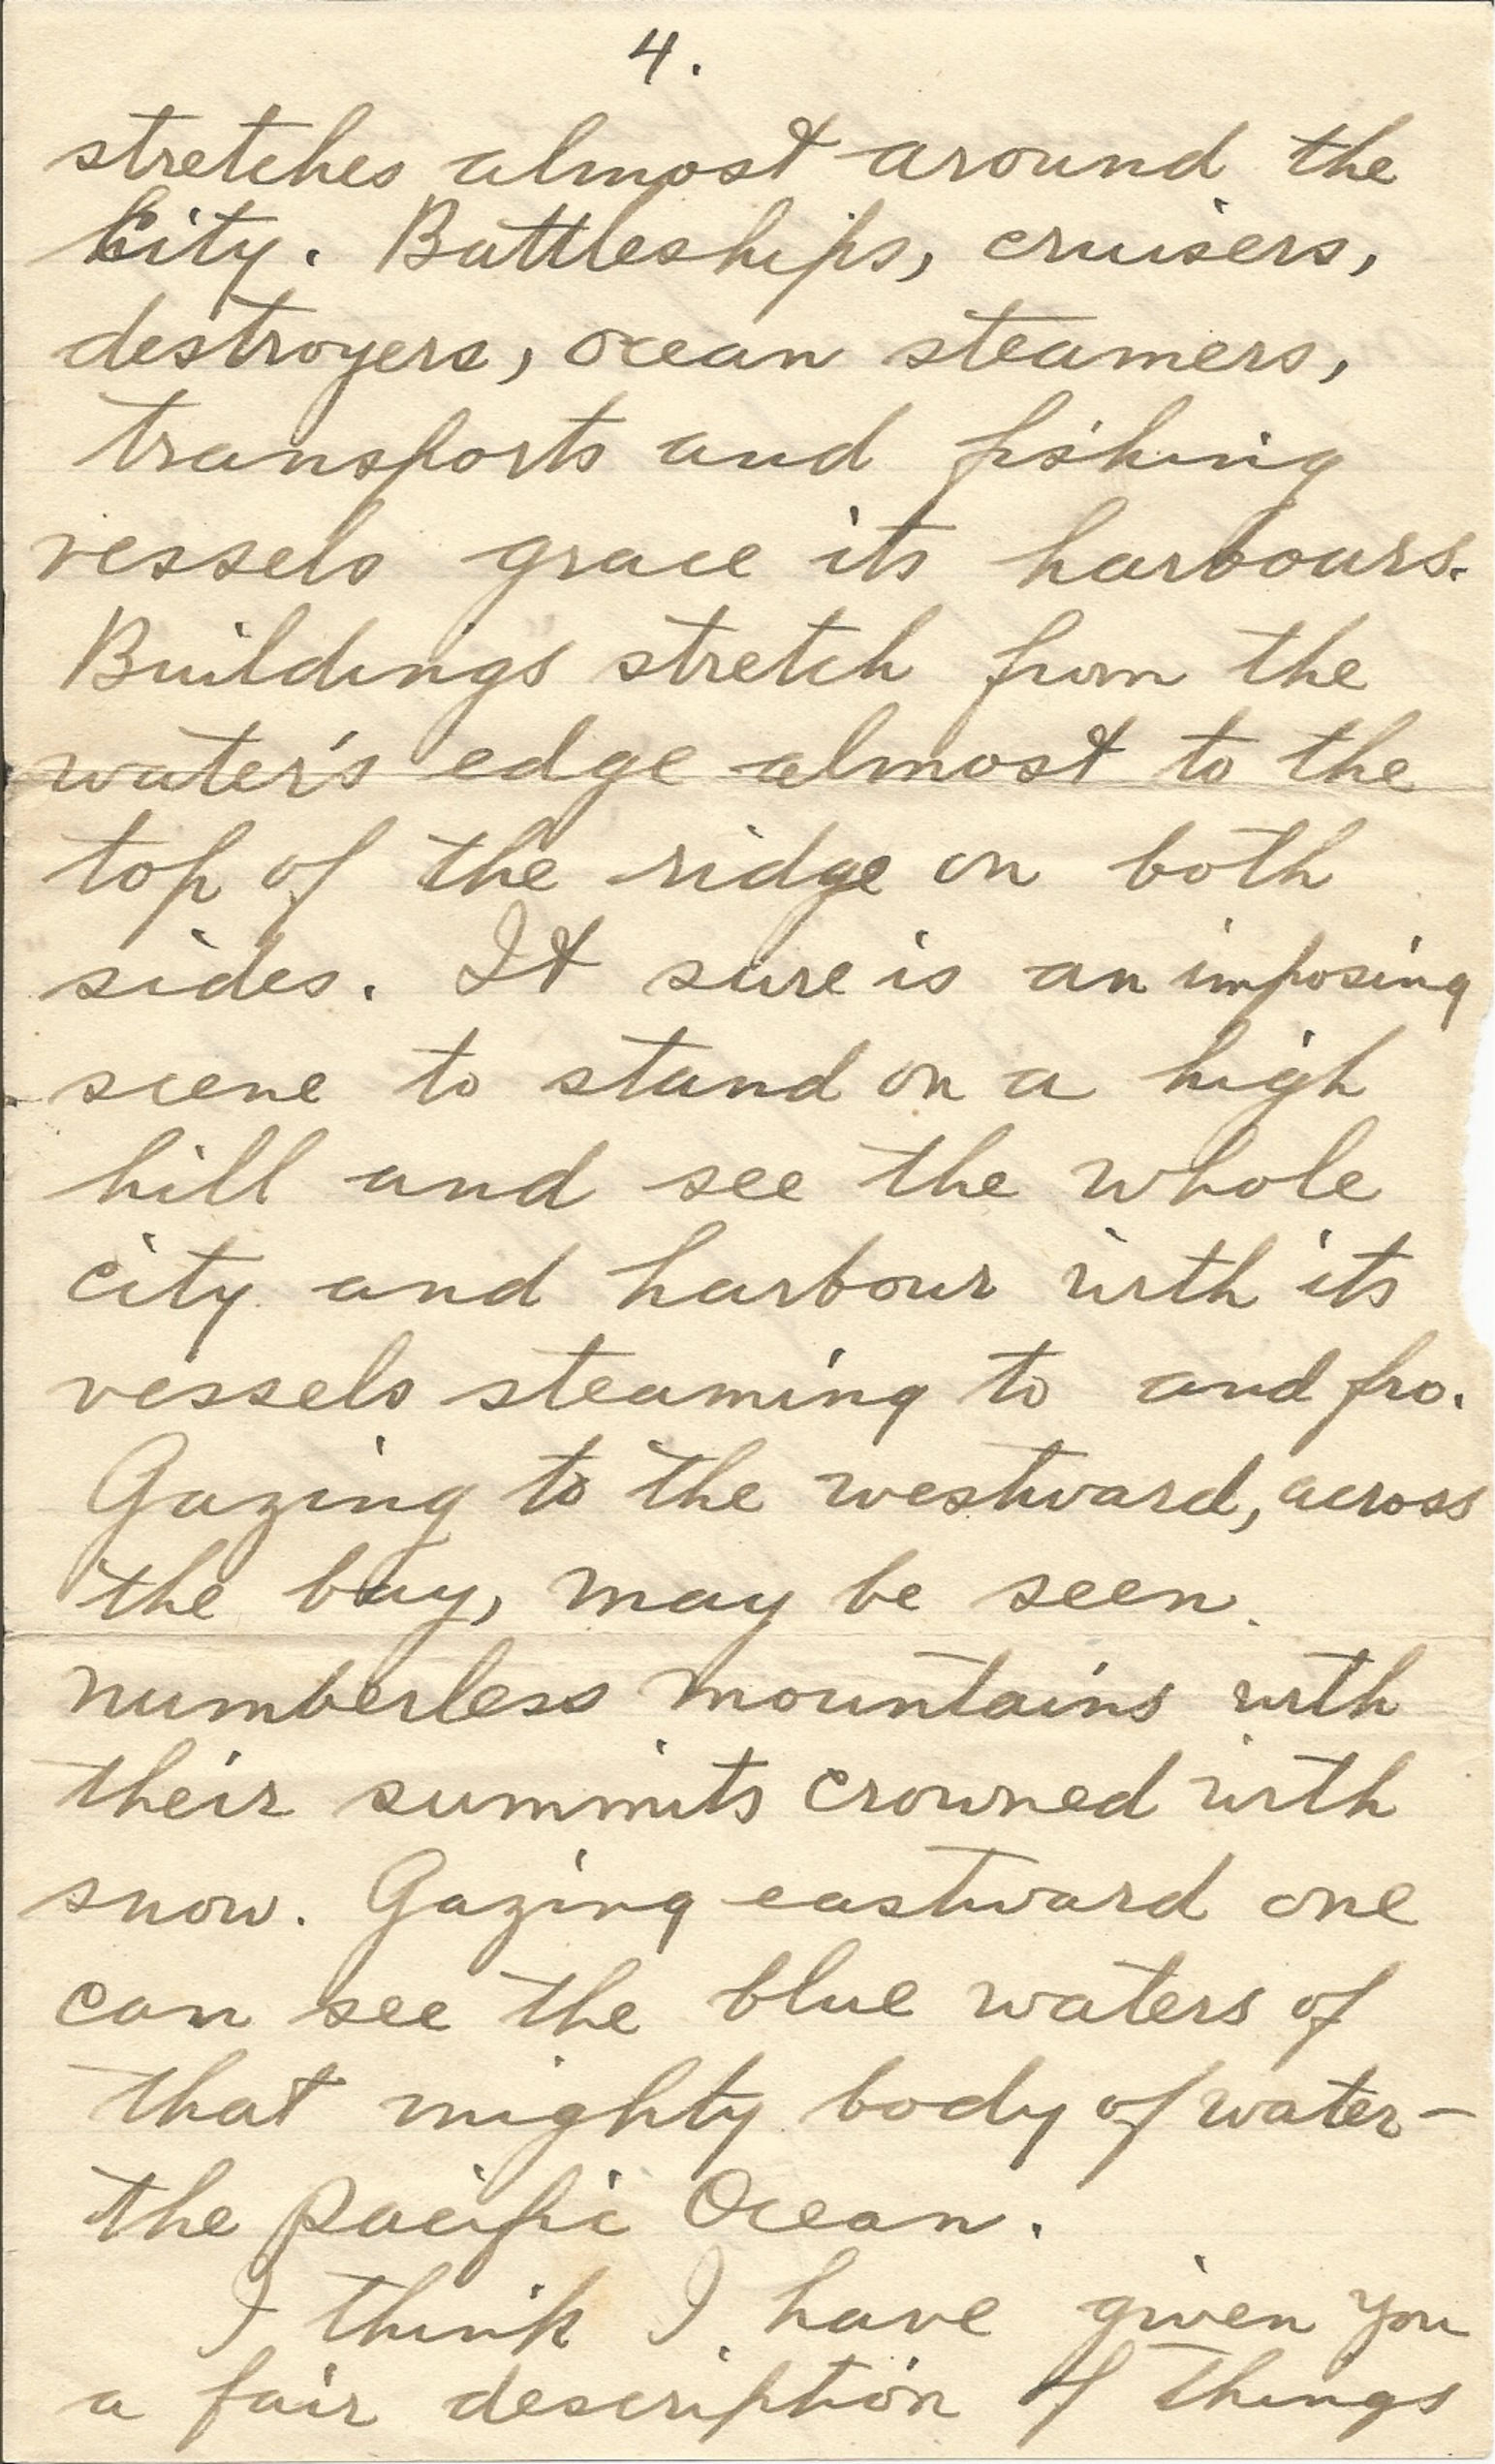 4.
stretches almost around the
City. Battleships, cruisers,
destroyers, ocean steamers,
transports and fishing
vessels grace its harbours.
Buildings stretch from the
water's edge almost to the
top of the ridge on both
sides. It sure is an imposing
scene to stand on a high
hill and see the whole
city and harbour with its
vessels steaming to and fro.
Gazing to the westward, across
the bay, may be seen
numberless mountains with
their summits crowned with
snow. Gazing eastward one
can see the blue waters of
that mighty body of water-
the Pacific Ocean.
I think I have given you
a fair description of things